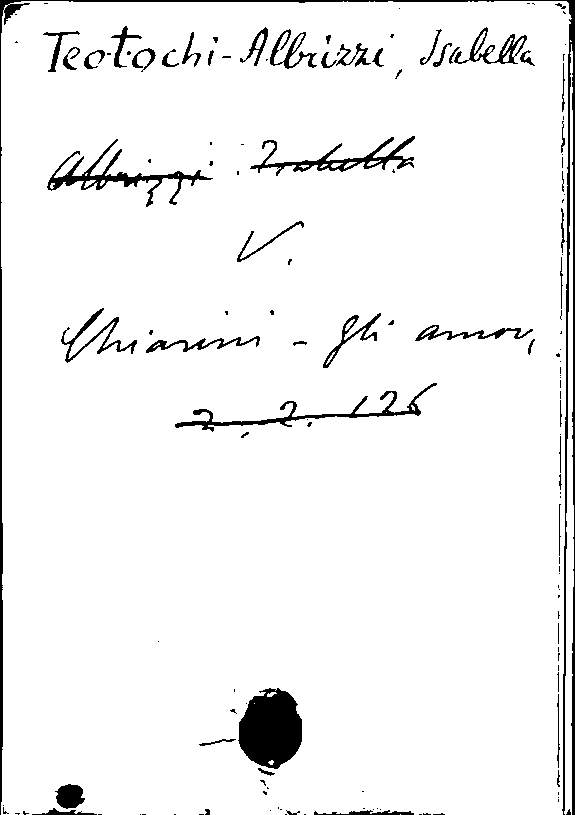 Teotochi-Albrizzi, Isabella
Albrizzi Isabella
V.
Chiarini - gli amori
2. 2. 126